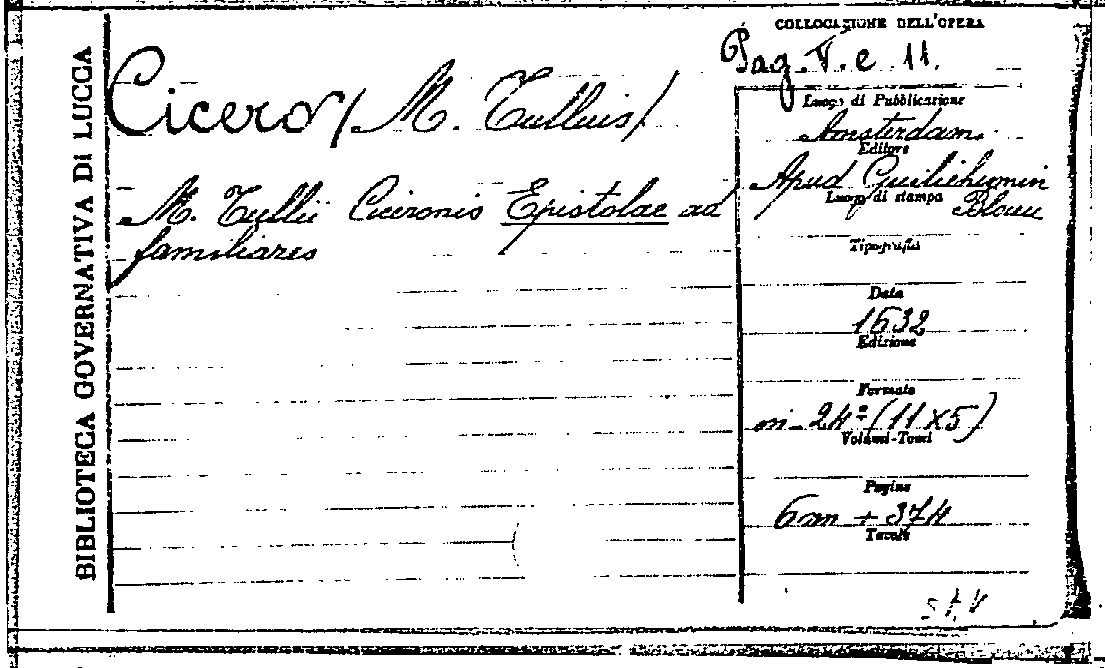 BIBLIOTECA GOVERNATIVA DI LUCCA
Cicero (M. Tullius)
M. Tullii Ciceronis Epistolae ad
familiares
COLLOCAZIONE DELL'OPERA
Pag. V. e 11.
Luogo di Pubblicazione
Amsterdam.
Editore
Apud Guilielmum
Blaeu
Luogo di stampa
Tipografia
Data
1632
Edizione
Formato
in-24º (11x5)
Volumi-Tomi
Pagine
6nn + 374
Tavole